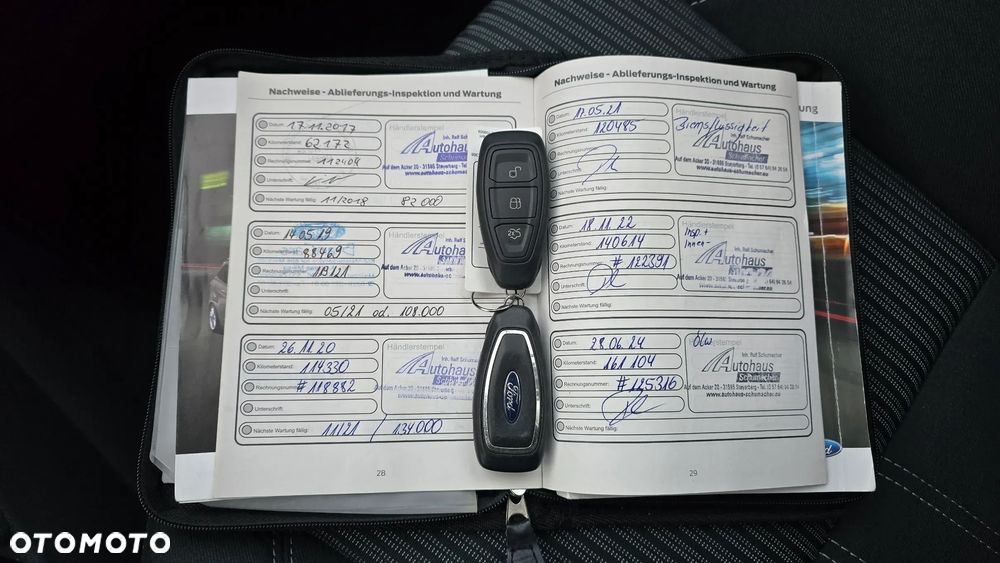 Nachweise - Ablieferungs-Inspektion und Wartung
Datum: 17.11.2017
Kilometerstand: 62172
Rechnungsnummer: 112404
Unterschrift:
Nächste Wartung fällig: 11/2018 82 000
Händlerstempel
Inh. Ralf Schumacher
Autohaus
Auf dem Acker 20 - 31595 Steyerberg - Tel.
www.autohaus-schumacher
Datum: 14.05.19
Kilometerstand: 88469
Rechnungsnummer: 119121
Unterschrift:
Nächste Wartung fällig: 05/21 od. 108.000
Händlerstempel
Autohaus
Datum: 26.11.20
Kilometerstand: 114330
Rechnungsnummer: #118882
Unterschrift:
Nächste Wartung fällig: 11/21 / 134000
Händlerstempel
Inh. Ralf Schumacher
Autohaus
28
Nachweise - Ablieferungs-Inspektion und Wartung
Datum: 17.05.21
Kilometerstand: 120485
Rechnungsnummer:
Unterschrift:
Nächste Wartung fällig:
Händlerstempel
Bremsflüssigkeit
Inh. Ralf Schumacher
Autohaus
Schumacher
Auf dem Acker 20 - 31595 Steyerberg - Tel. (0 57 64) 94 26 54
www.autohaus-schumacher.eu
Datum: 18.11.22
Kilometerstand: 140614
Rechnungsnummer: #122391
Unterschrift:
Nächste Wartung fällig:
Händlerstempel
Insp. +
Innen-
Inh. Ralf Schumacher
Autohaus
Datum: 28.06.24
Kilometerstand: 161 104
Rechnungsnummer: #125316
Unterschrift:
Nächste Wartung fällig:
Händlerstempel
Ölw
Inh. Ralf Schumacher
Autohaus
Schumacher
Auf dem Acker 20 - 31595 Steyerberg - Tel. (0 57 64) 94 26 54
www.autohaus-schumacher.eu
29
Ford
OTOMOTO